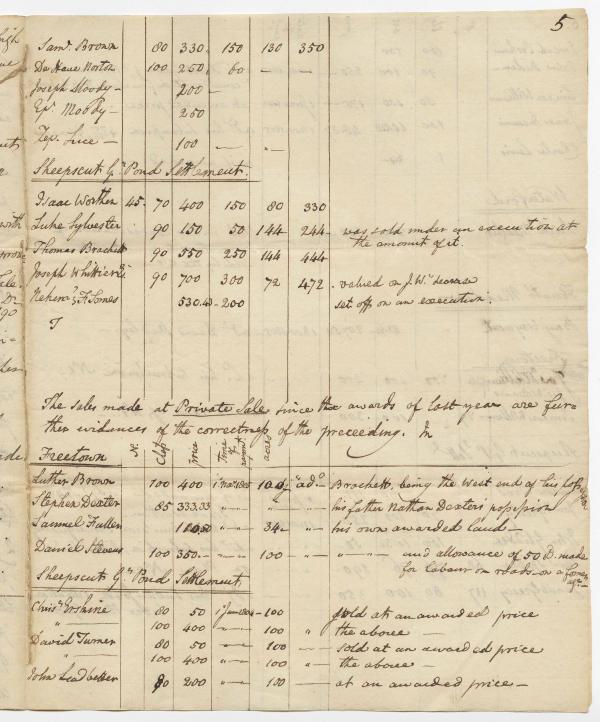 5
Saml. Brown 80 330. 150 130 350
De Have Norton 100 250. 60 — —
Joseph Moody — 200 —
Epm. Moody — 250
Zep. 100 — —
Sheepscut Gt. Pond Settlement.
Isaac Worthen 45. 70 400 150 80 330
Luke Sylvester 90 150 50 144 244 — was sold under an execution at
the amount of it.
Thomas Brackett 90 550 250 144 444
Joseph Whittier 90 700 300 72 472 . valued on J. W's decease
530.43 200 set off on an execution.
The sales made at Private Sale since the awards of last year are fur-
ther evidences of the correctness of the preceeding. In
Freetown N. Class price Time of payment acres
Luther Brown 100 400 100 — Brackett, being the West end of his
Stephen Dexter 85 333.33 " — — " — his father Nathan Dexter's possession
Samuel Fuller " — 34 — " — his own awarded land —
Daniel Stevens 100 350. — " — 100 — " — " — " — and allowance of 50 D. made
for labour on roads — on a former
Sheepscut Gt. Pond Settlement
Chrisr. Erskine 80 50 1 Jan 1804 — 100 sold at an awarded price
" 100 400 " — 100 " the above —
David Turner 80 50 " — 100 — sold at an awarded price
" 100 400 " — 100 " the above —
John Leadbetter 80 200 " — 100 — at an awarded price —